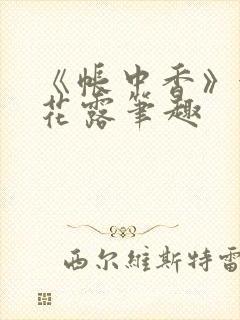 《帳中香》
花露筆趣
西尔維斯特雷